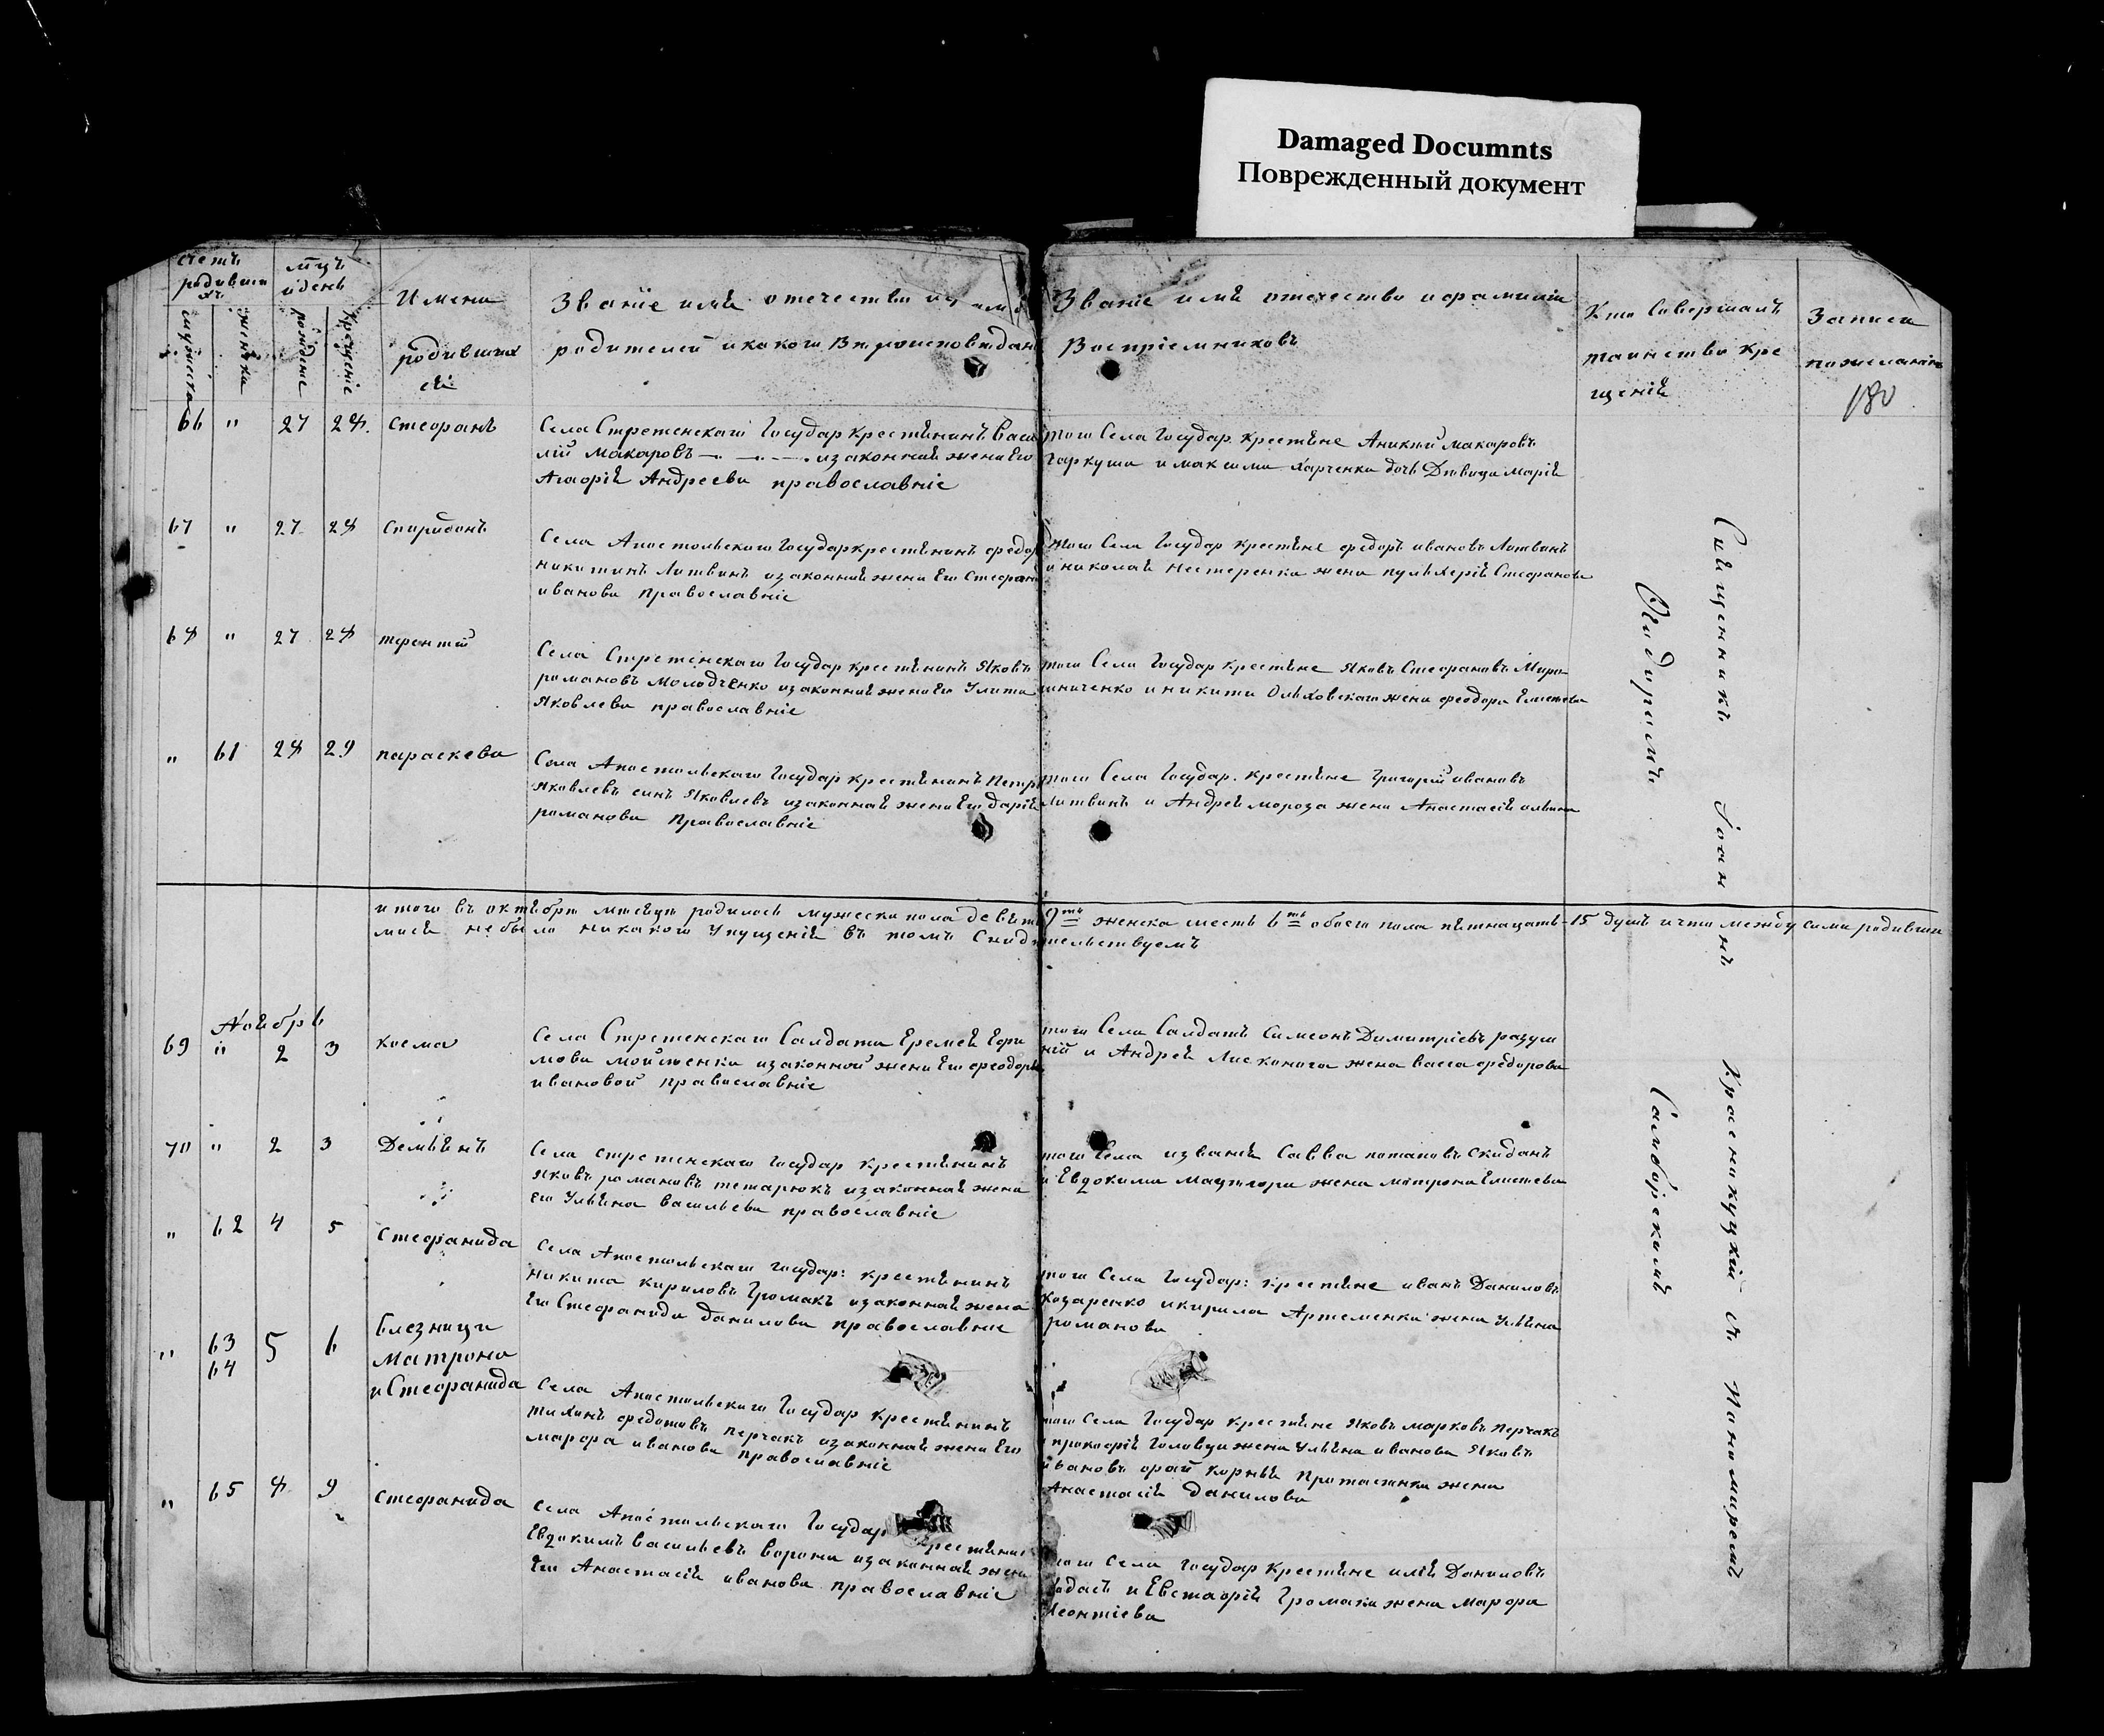 Damaged Documnts
Поврежденный документ
счетъ родивших
мѣсяцъ и день
мужеска
женска
рожденіе
крещеніе
Имена
родивших
ся
Званіе имя отечество и
родителей и какого вѣроисповѣдан
Званіе имя отечество и фамилія
Воспріемниковъ
Кто совершалъ
таинство кре
щенія
Записи
по желанію
180
66 " 27 28. Стефанъ
Села Стретенскаго Государ крестянинъ Васи
лій Макаровъ изаконная жена Его
Агафія Андреева православніе
того Села Государ. крестяне Аникій Макаровъ
Гаркуша и Максима Харченка дочь Дѣвица Марія
67 " 27 28 Спиридонъ
Села Апостольскаго Государ крестянинъ Федор
Никитинъ Литвинъ изаконная жена Его Стефан
Иванова православніе
того Села Государ крестяне Федоръ Ивановъ Литвинъ
и Николая Нестеренка жена Пульхерія Стефанова
68 " 27 28 Терентій
Села Стретенскаго Государ крестянинъ Яковъ
Романовъ Молодченко изаконная жена Его Улита
Яковлева православніе
того Села Государ крестяне Яковъ Стефановъ Миро
шниченко и Никити Ольховскаго жена Феодора Елисеева
" 61 28 29 Параскева
Села Апостольскаго Государ крестянинъ Петр
Яковлевъ синъ Яковлевъ изаконная жена Его Дарія
Романова Православніе
того Села Государ. крестяне Григорій Ивановъ
Литвинъ и Андрея Мороза жена Анастасія
итого въ октябрѣ мѣсяцѣ родилось мужеска пола девять 9ть женска шесть 6ть обоего пола пятнацать 15 душъ и что между сими родивши
мися небыло никакого упущенія въ томъ Свидѣтельствуемъ
Ноябрь
69 " 2 3 Косма
Села Стретенскаго Салдата Еремея Ефи
мова Мойсѣенка изаконной жени Его Феодори
Ивановой православніе
того Села Салдатъ Симеонъ Димитріевъ разум
ній и Андрея Лисконога жена Васса Федорова
70 " 2 3 Демьянъ
Села Стретенскаго Государ крестянинъ
Яковъ Романовъ Тетарюкъ изаконная жена
Его Ульяна Васильева православніе
того Села Савва Потаповъ Скиданъ
и Евдокима жена Матрона Елисеева
" 62 4 5 Стефанида
Села Апостольскаго Государ: крестянинъ
Никита Кириловъ Громакъ изаконная жена
Его Стефанида Данилова православніе
того Села Государ: крестяне Иванъ Даниловъ
Козаренко и Кирила Артеменка жена Ульяна
Романова
" 63 64 5 6 близници
Матрона
и Стефанида
Села Апостольскаго Государ крестянинъ
Тихонъ Федотовъ Перчакъ изаконная жена Его
Марфа Иванова православніе
того Села Государ крестяне Яковъ Марковъ Перчакъ
и Прокофія Головци жена Ульяна Иванова Яковъ
Ивановъ Корнія Протасенка жена
Анастасія Данилова
" 65 8 9 Стефанида
Села Апостольскаго Государ крестянин
Евдокимъ Васильевъ Ворона изаконная жена
Его Анастасія Иванова православніе
того Села Государ крестяне Илія Даниловъ
и Евстафія Громака жена Марфа
Леонтіева
Священникъ Іоаннъ Краснокуцкій съ Пономаремъ
Сидиромъ Самборскимъ